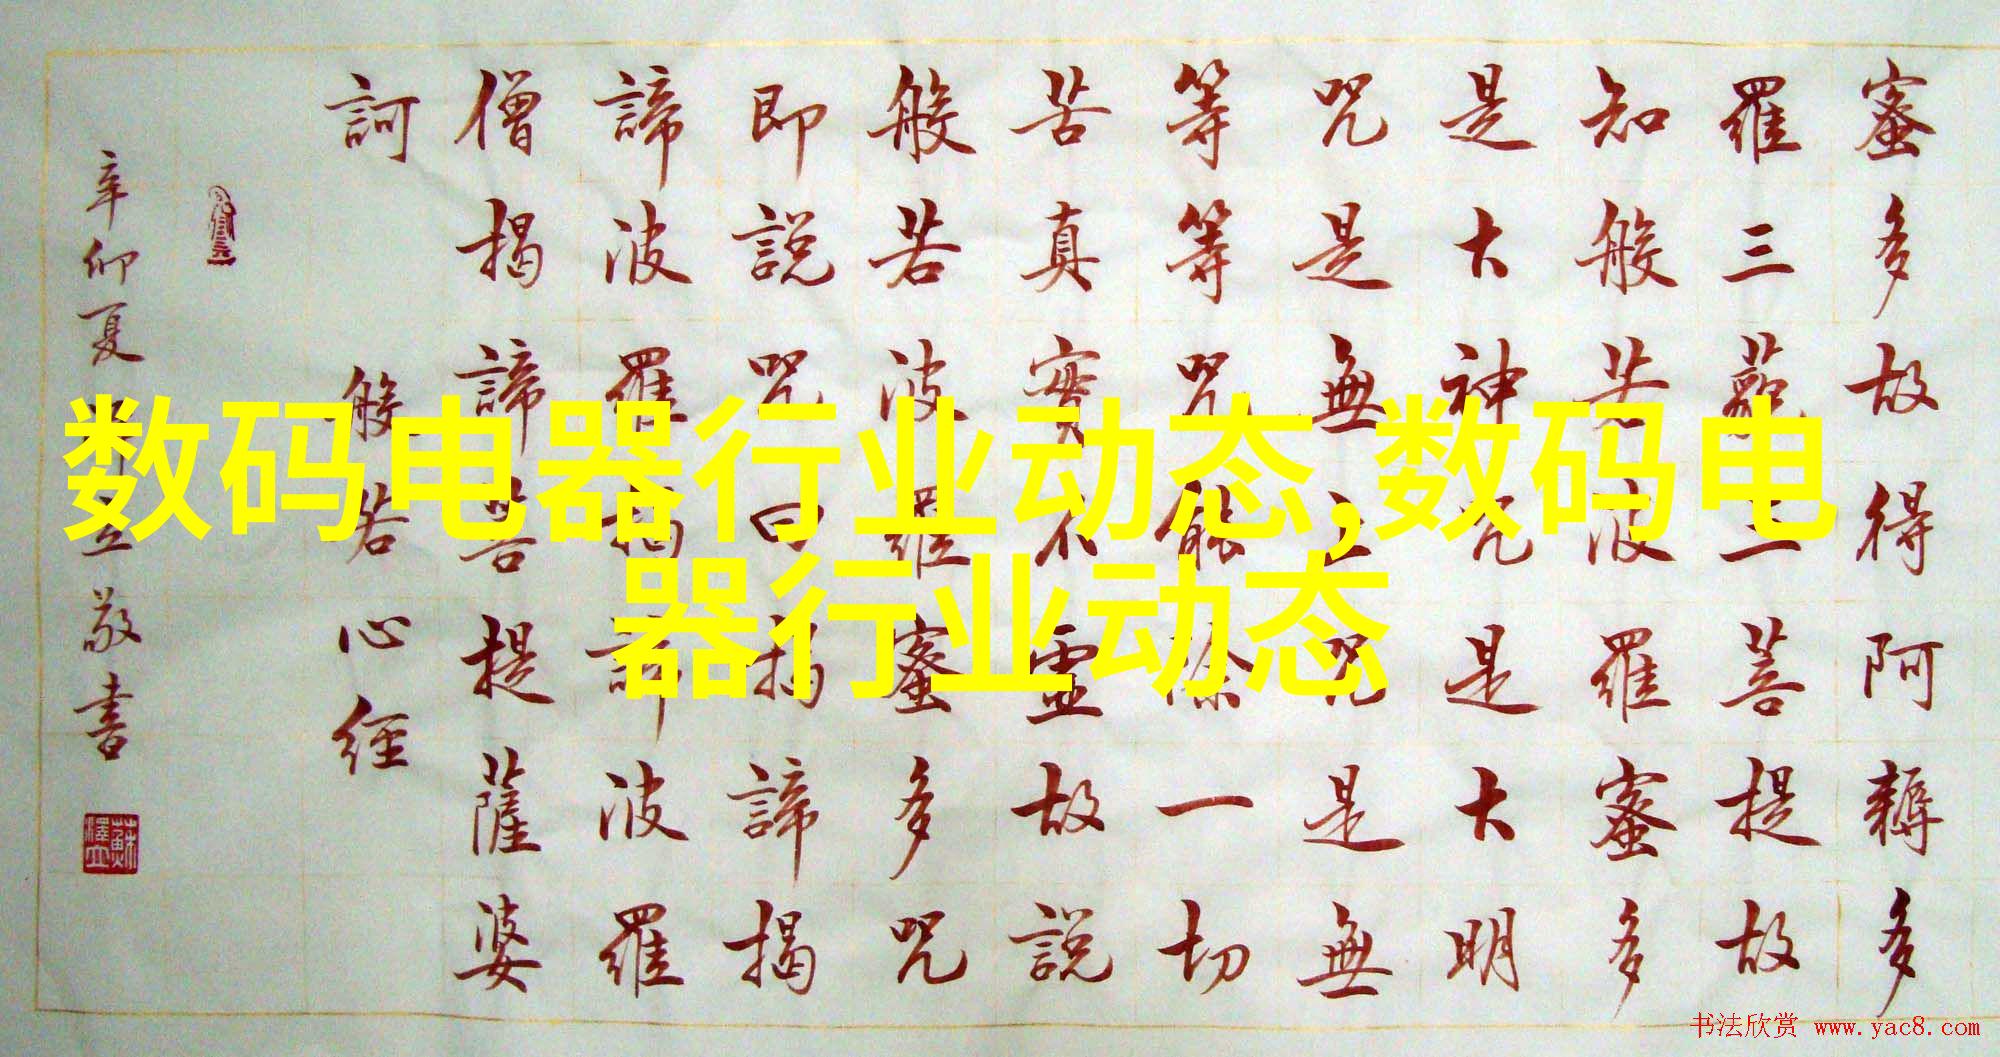 数码电器行业动态,数码电
器行业动态
蜜多故得阿耨多
羅三藐三菩提故
知般若波羅蜜多
是大神咒是大明
咒是無上咒是無
等等咒能除一切
苦真實不虛故說
般若波羅蜜多咒
即說咒曰揭諦揭
諦波羅揭諦波羅
僧揭諦菩提薩婆
訶
般若心経
辛卯夏立敬書
书法欣赏 www.yac8.com